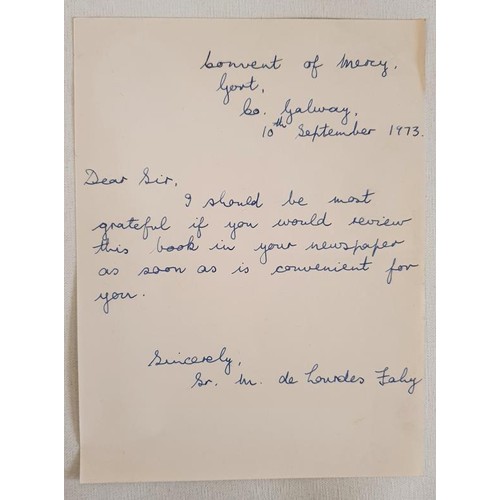 Convent of Mercy,
Gort,
Co. Galway,
10th September 1973.
Dear Sir,
I should be most
grateful if you would review
this book in your newspaper
as soon as is convenient for
you.
Sincerely,
Sr. M. de Lourdes Fahy